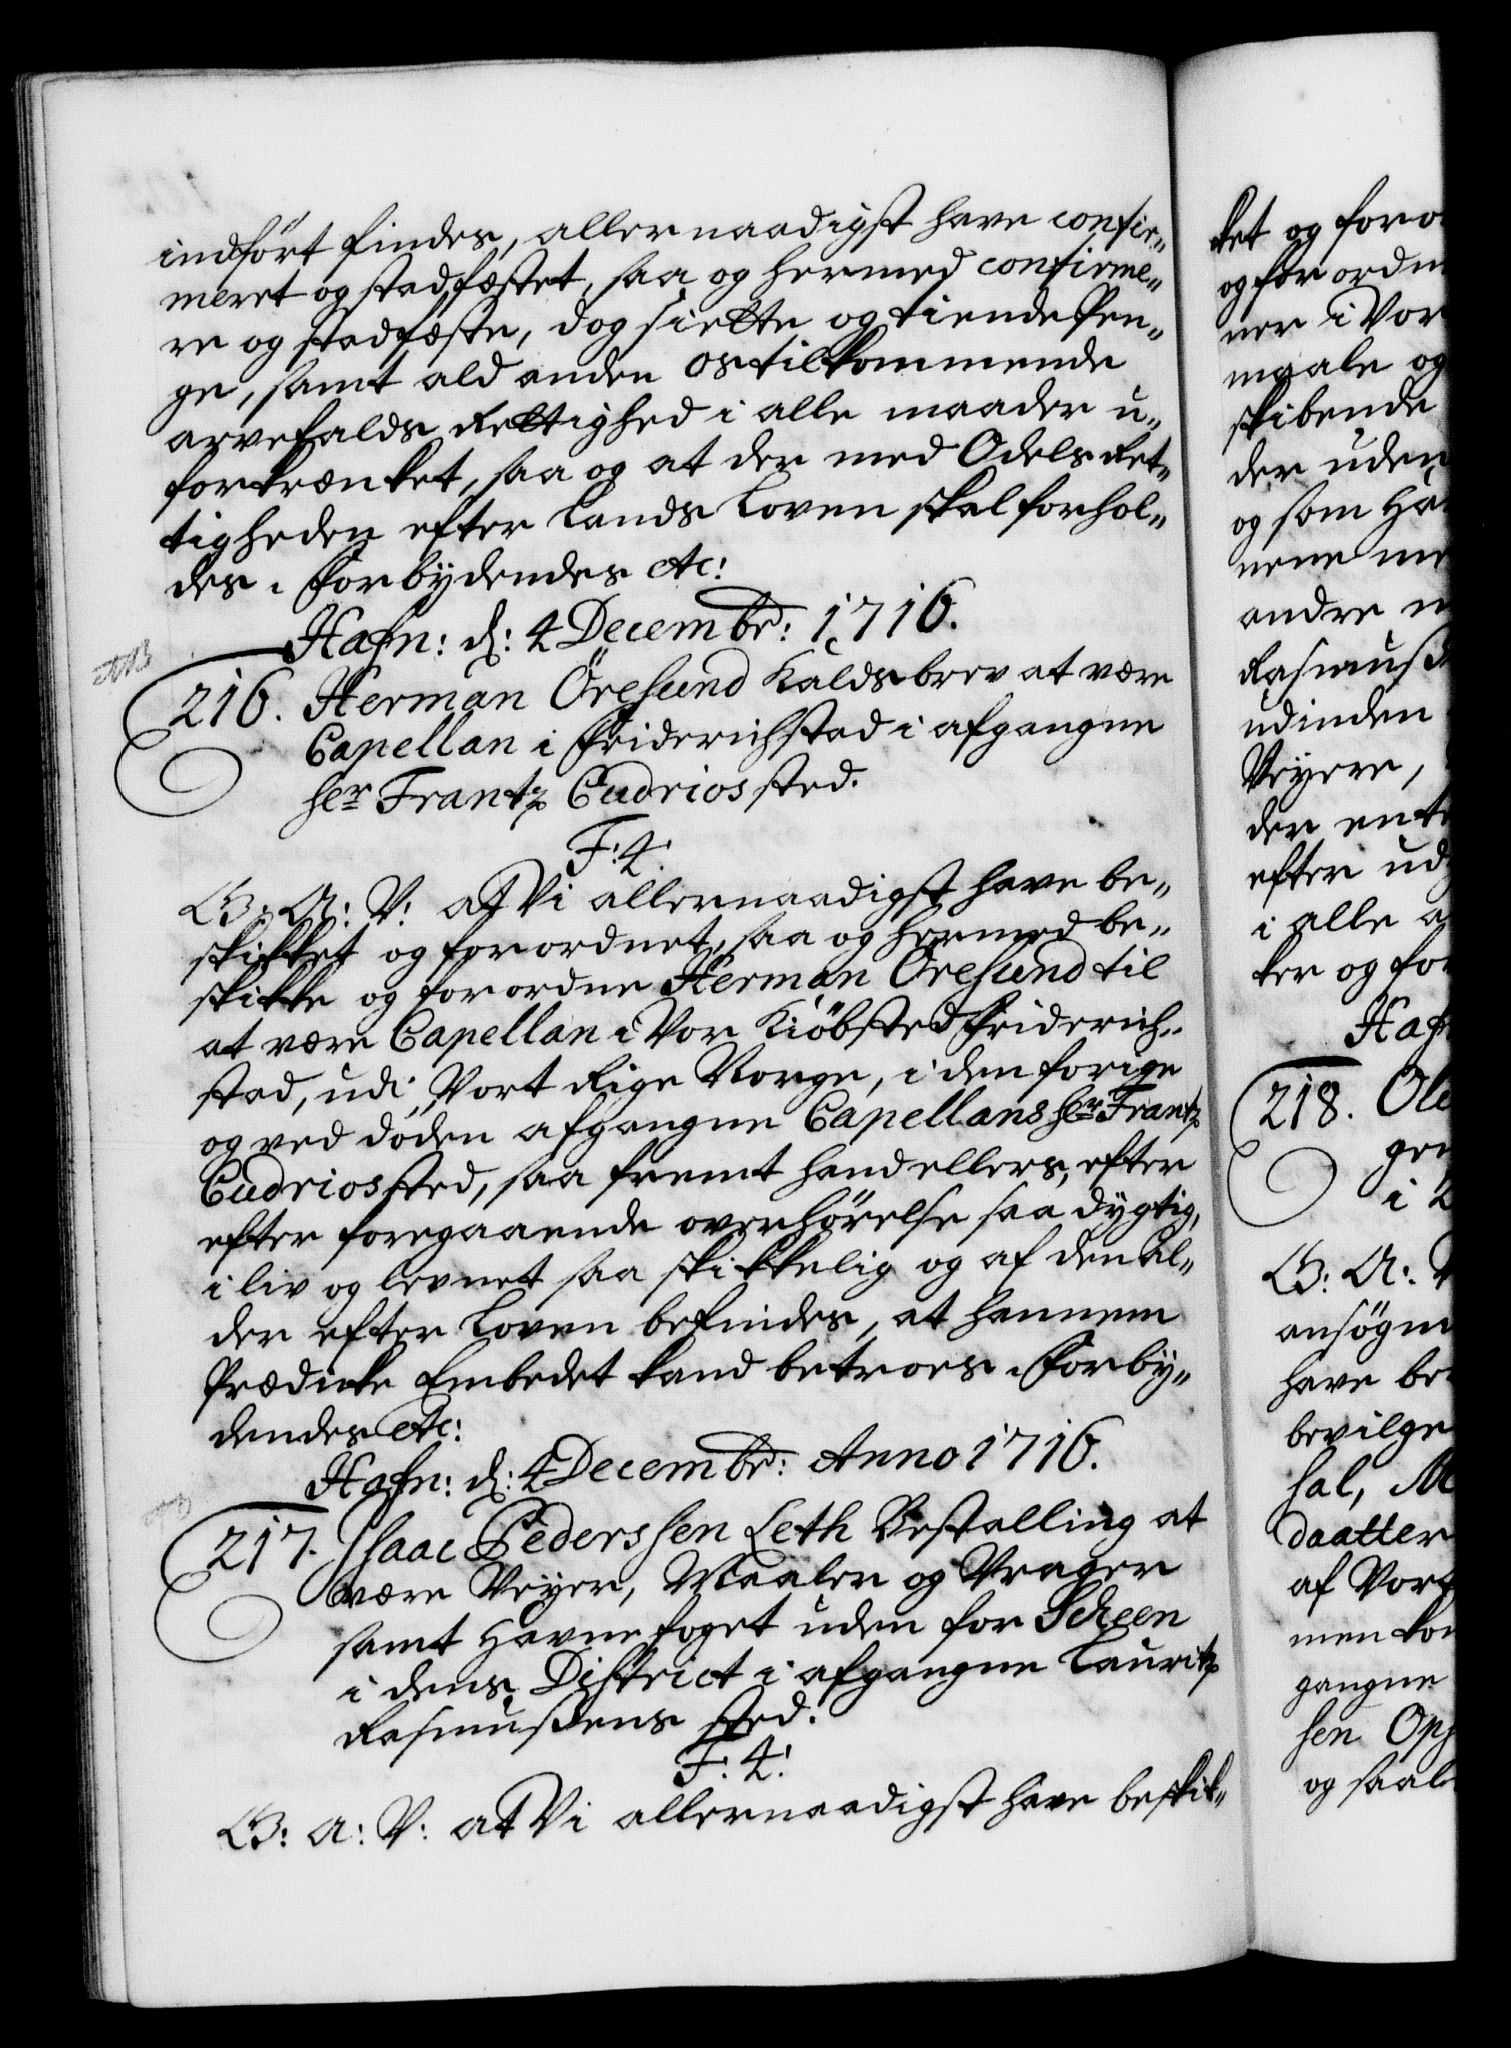 indført findes, allernaadigst have confir„
meret og stadfæstet, saa og hermed confirme„
re og stadfæste, dog siette og tiende Pen„
ge, samt ald anden os tilkommende
arvefalds Rettighed i alle maader u„
forkrænket, saa og at der med Odels Ret„
tigheden efter Lands Loven skal forhol„
des. Forbydendes etc:
Hafn: d: 4 Decembr: 1716.
NB
216. Herman Öresund Kaldsbrev at være
Capellan i Friderichstad i afgangne
Hr Frantz Cudrios sted.
F: 4.
G: A: V: at Vi allernaadigst have be„
skikket og forordnet, saa og hermed be„
skikke og forordne Herman Öresund til
at være Capellan i Vor Kiöbsted Friderich„
stad, udi Vort Rige Norge, i den forige
og ved döden afgangne Capellans Hr Frantz
Cudrios sted, saa fremt hand ellers, efter
efter foregaaende overhörelse saa dygtig,
i liv og levnet saa skikkelig og af den Al„
der efter Loven befindes, at hannem
Prædicke Embedet kand betroes. Forby„
dendes etc:
Hafn: d: 4 Decembr: Anno 1716.
217. Isaac Pederssen Leth Bestalling at
være Veyer, Maaler og Vrager
samt Havne foget uden for Scheen
i dens District i afgangne Lauritz
Rasmussens sted.
F: 4.
G: A: V: at Vi allernaadigst have beskik„
ket og foro
og for ordn
ner i Vor
maale og
skibende
der uden
og som Ha
nene me
andre
Rasmuss
udinden
Veyere,
der ent
efter ud
i alle
ker og for
Haf
218. Ole
gen
i
G: A: V
ansögn
have be
bevilge
hal, M
daatter
af Vor
men kon
gangne
sen Op
og saal